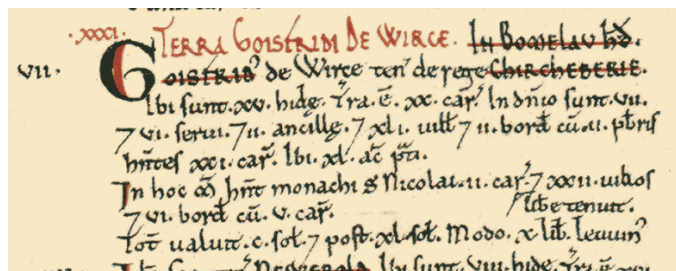 .XXXI. TERRA GOISFRIDI DE WIRCE. In Bomelau hđ.
VII. GOISFRID' de Wirce ten' de rege CHIRCHEBERIE.
Ibi sunt .xv. hidę. T'ra .ē. xx. car'. In dn̄io sunt .vii.
⁊ vi. serui. ⁊ ii. ancillę. ⁊ xli. uilƚi ⁊ ii. borđ cū .ii. pƀris
hn̄tes xxi. car'. Ibi .xl. ac̄ p̄ti.
In hoc m̄ hn̄t monachi S Nicolai .ii. car'. ⁊ xxii. uiƚƚos
⁊ vi. borđ cū .v. car'. Liƀe tenuit.
Tot̄ ualuit .c. soƚ. ⁊ post .xl. soƚ. Modo .x. liƀ. Leuuin'
Ibi sunt .viii. hidę. T'ra ē